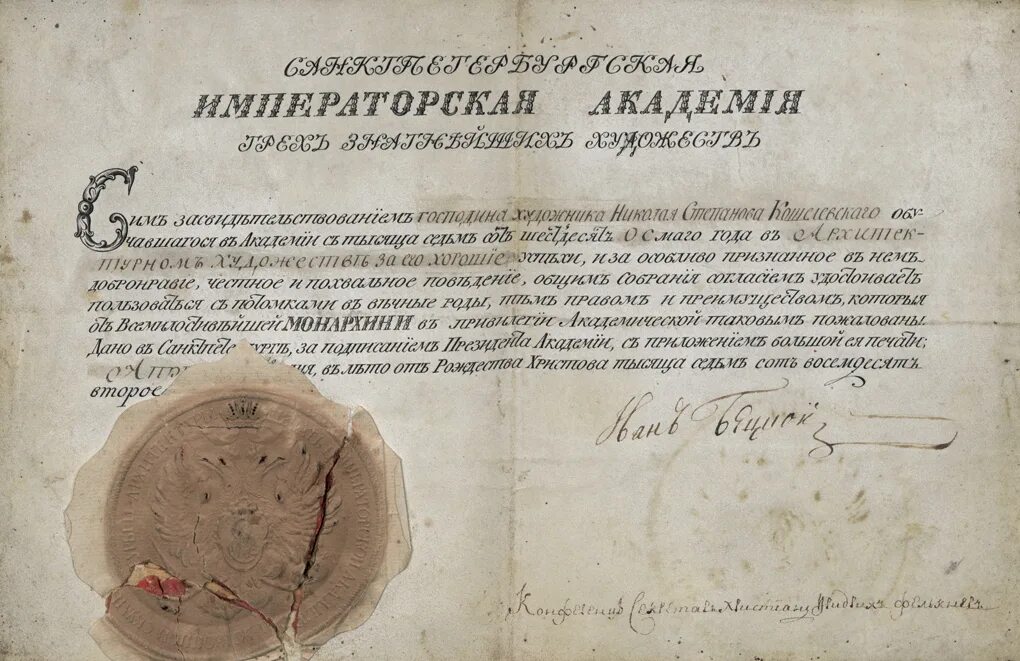 САНКТПЕТЕРБУРГСКАЯ
ИМПЕРАТОРСКАЯ АКАДЕМІЯ
ТРЕХЪ ЗНАТНѢЙШИХЪ ХУДОЖЕСТВЪ
Симъ засвидѣтельствованіемъ господина художника Николая Степанова Кошелевскаго обу-
чавшагося въ Академіи съ тысяща седьмъ сотъ шестьдесятъ осмаго года въ Архитек-
турномъ художествѣ за его хорошіе успѣхи, и за особливо признанное въ немъ
добронравіе, честное и похвальное поведеніе, общимъ Собранія согласіемъ удостоиваетъ
пользоваться съ потомками въ вѣчные роды, тѣмъ правомъ и преимуществомъ, которыя
отъ Всемилостивѣйшей МОНАРХИНИ въ привилегіи Академической таковымъ пожалованы.
Дано въ Санктпетербургѣ, за подписаніемъ Президента Академіи, съ приложеніемъ большой ея печати;
въ лѣто отъ Рождества Христова тысяща седьмъ сотъ восемдесятъ
второе
Иванъ Бецкой
Конференцъ Секретарь Христіанъ